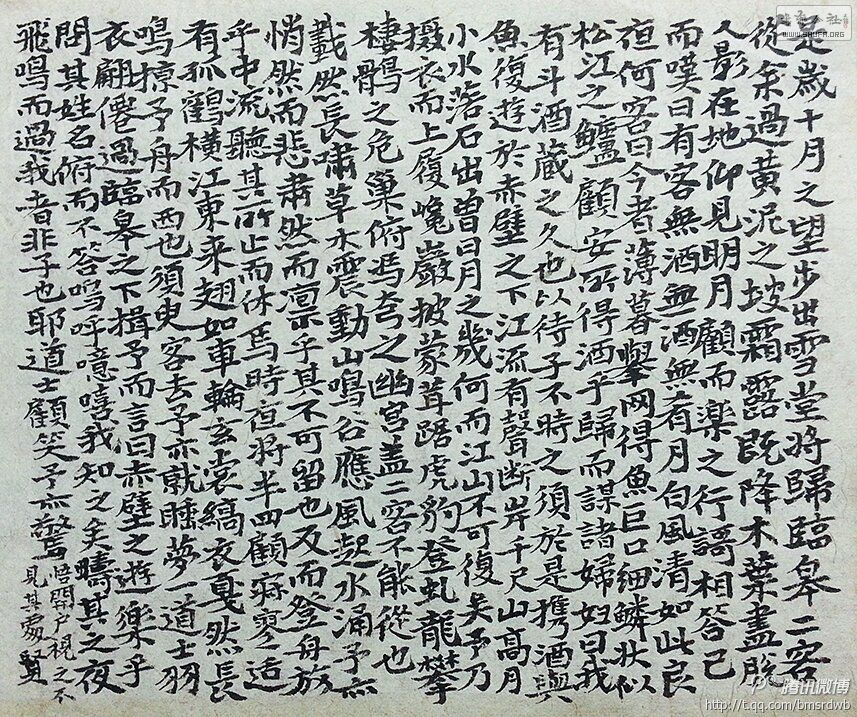 是歲十月之望步出雪堂將歸臨皋二客
從余過黃泥之坡霜露既降木葉盡脫
人影在地仰見明月顧而樂之行謌相答已
而嘆曰有客無酒無酒無肴月白風清如此良
夜何客曰今者薄暮舉网得魚巨口細鱗狀似
松江之鱸顧安所得酒乎歸而謀諸婦婦曰我
有斗酒藏之久也以待子不時之須於是攜酒與
魚復遊於赤壁之下江流有聲斷岸千尺山高月
小水落石出曾日月之幾何而江山不可復矣予乃
攝衣而上履巉巖披蒙茸踞虎豹登虬龍攀
棲鶻之危巢俯馮夸之幽宮蓋二客不能從也
劃然長嘯草木震動山鳴谷應風起水涌予亦
悄然而悲肅然而凛乎其不可留也反而登舟放
乎中流聽其所止而休焉時夜將半四顧寂寥適
有孤鶴橫江東来翅如車輪玄裳縞衣戛然長
鳴掠予舟而西也須臾客去予亦就睡夢一道士羽
衣翩僊過臨皋之下揖予而言曰赤壁之遊樂乎
問其姓名俯而不答嗚呼噫嘻我知之矣疇其之夜
飛鳴而過我者非子也耶道士顧笑予亦驚
悟開户視之不
見其處賢
WWW.SHUFA.ORG
腾讯微博
http://t.qq.com/bmsrdwb